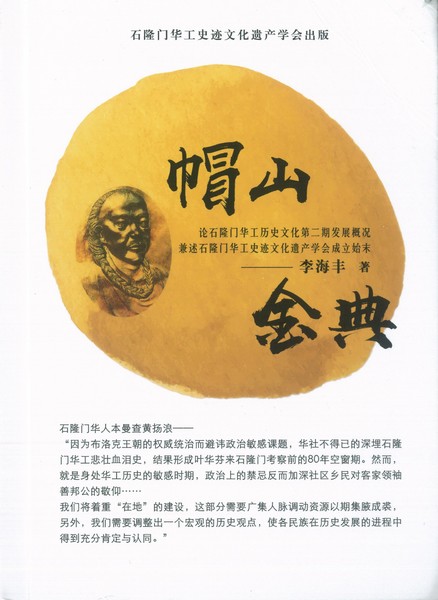 石隆门华工史迹文化遗产学会出版
帽山
论石隆门华工历史文化第二期发展概况
兼述石隆门华工史迹文化遗产学会成立始末
——李海丰 著
金典
石隆门华人本曼查黄扬浪——
“因为布洛克王朝的权威统治而避讳政治敏感课题，华社不得已的深埋石隆
门华工悲壮血泪史，结果形成叶华芬来石隆门考察前的80年空窗期。然而，
就是身处华工历史的敏感时期，政治上的禁忌反而加深社区乡民对客家领袖
善邦公的敬仰……
我们将着重“在地”的建设，这部分需要广集人脉调动资源以期集腋成裘，
另外，我们需要调整出一个宏观的历史观点，使各民族在历史发展的进程中
得到充分肯定与认同。”